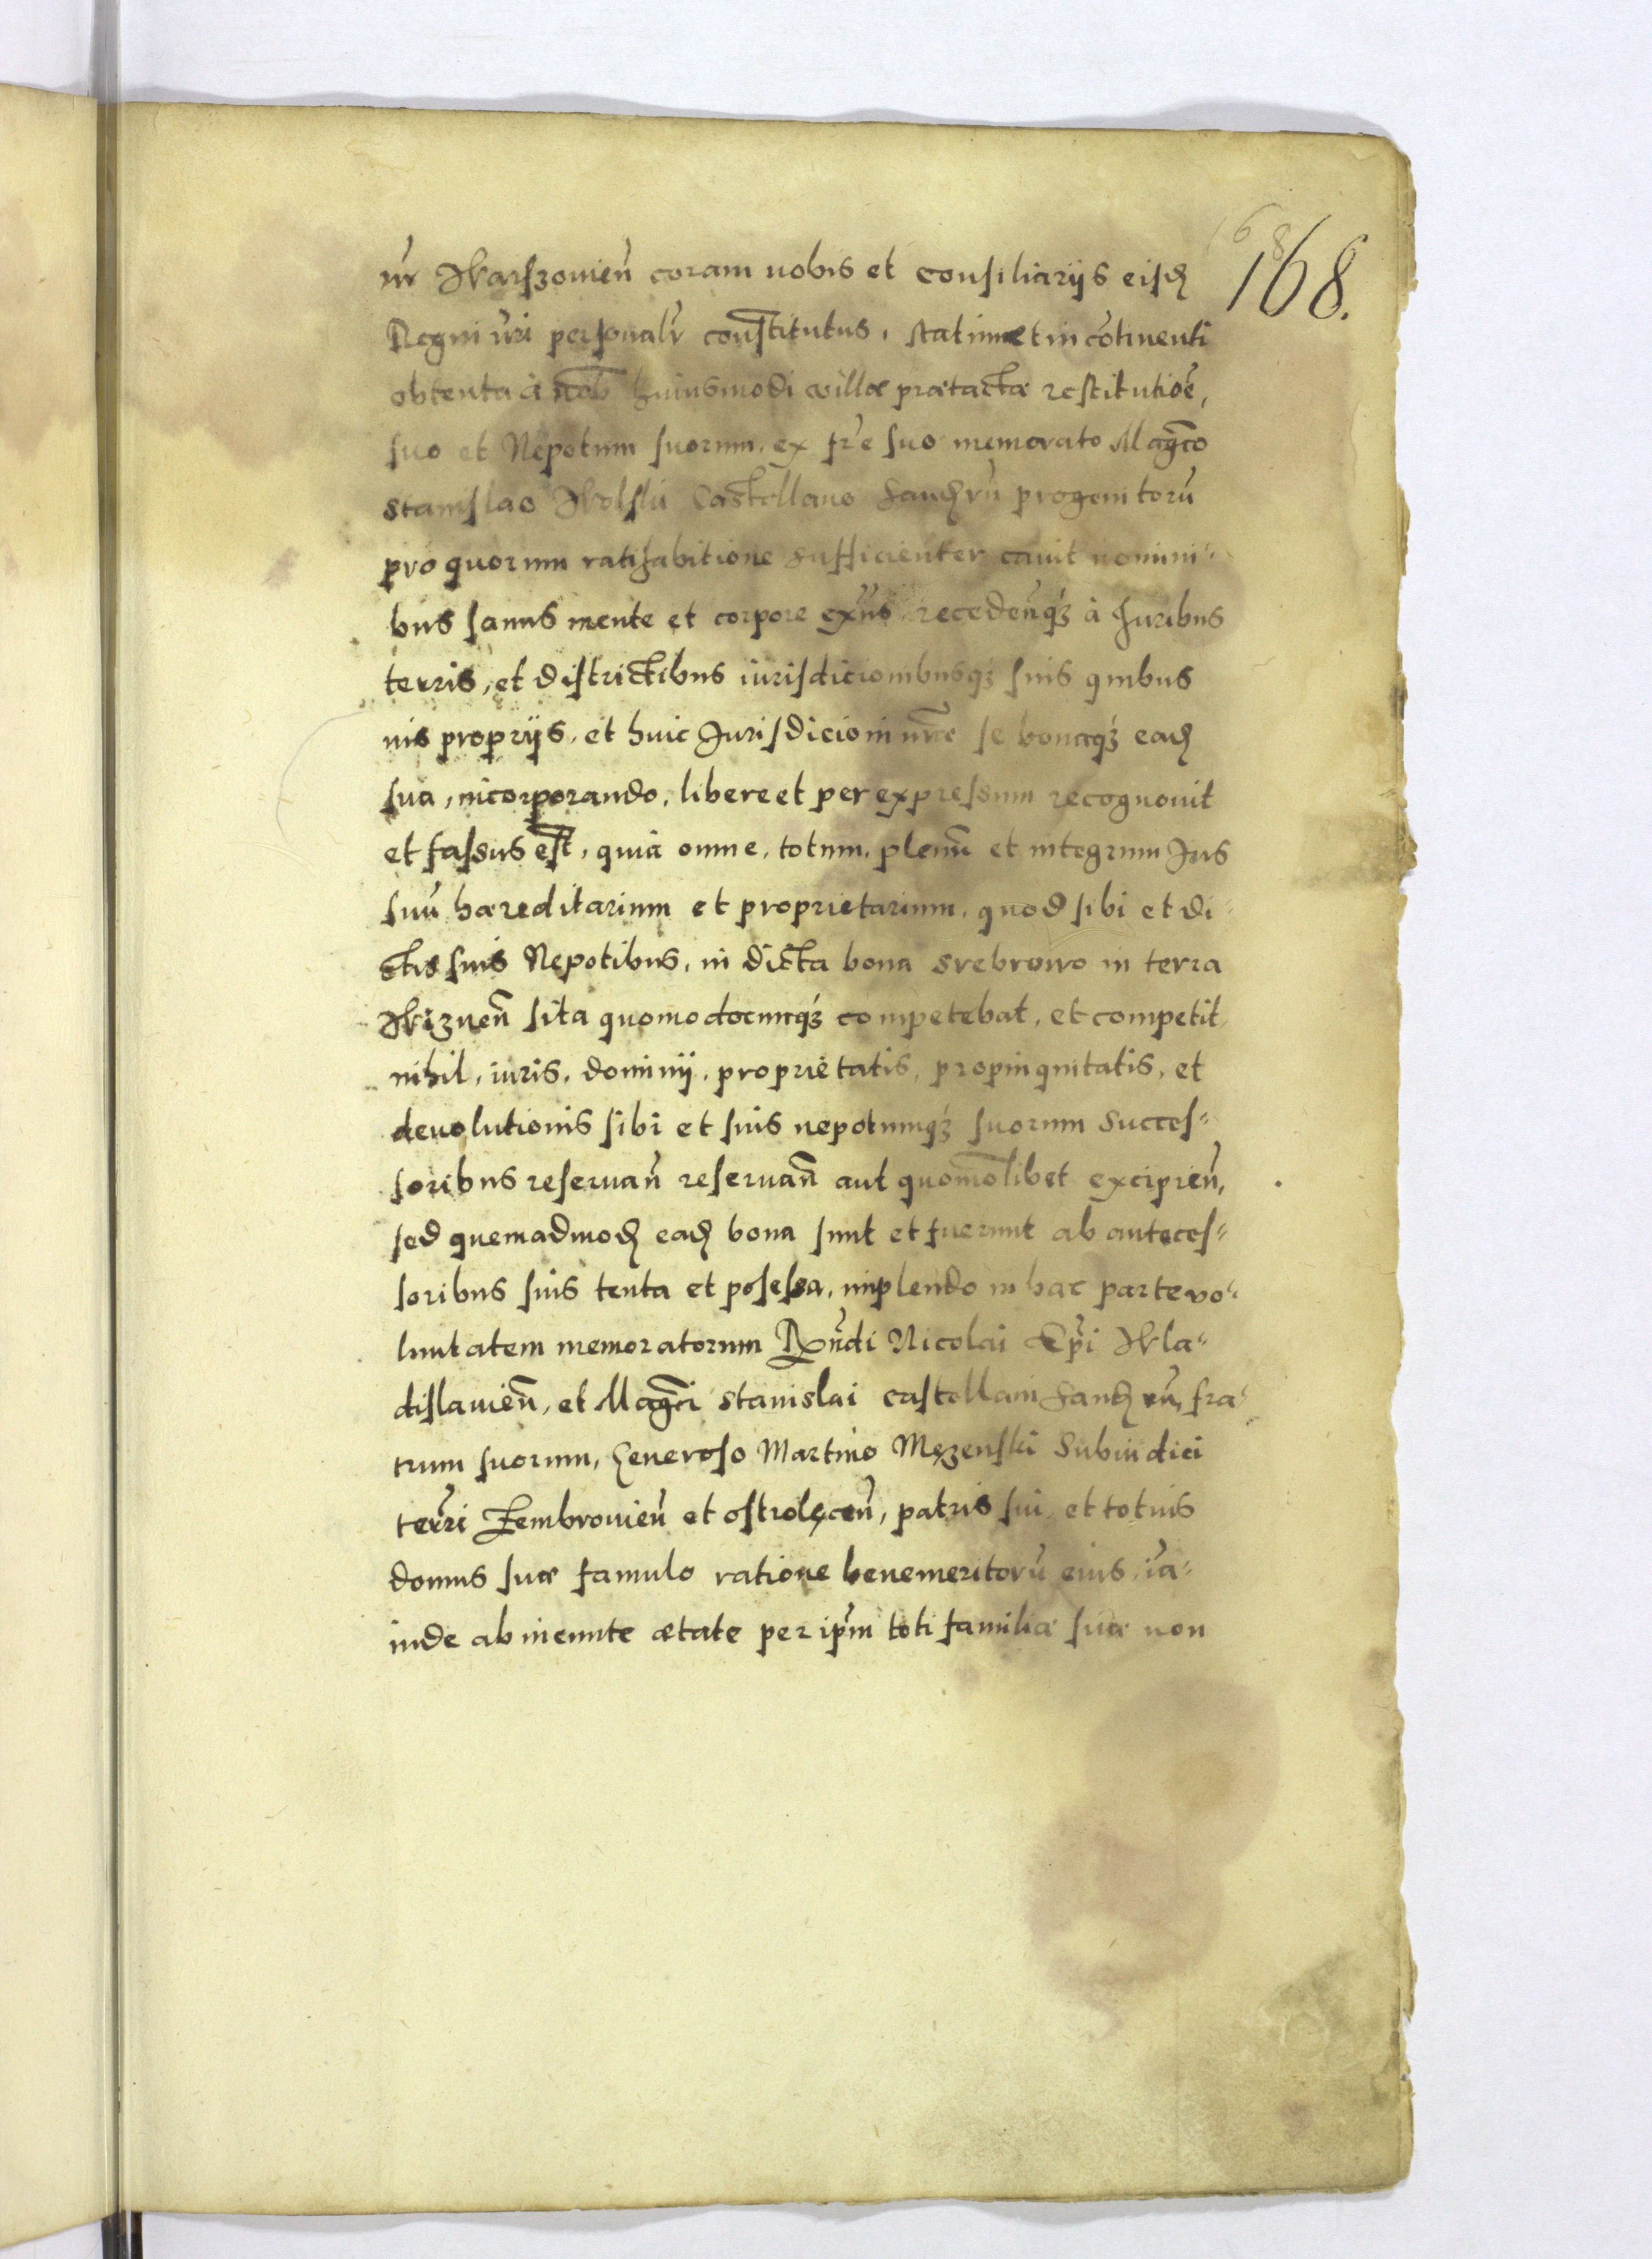 168
168.
nr̃ Warszouień coram nobis et Consiliarijs eisd
Regni nr̃i personalr̃ constitutus, statim et in cõtinenti
obtenta à nob huiusmodi villæ prætactæ restitutiõe,
suo et Nepotum suorum, ex fr̃e suo memorato Mag̃co
Stanislao Wolski Castellano Sandẽn progenitorũ
pro quorum ratihabitione sufficienter cauit nomini-
bus sanus mente et corpore exñs recedenq̃ à Juribus
terris, et districtibus iurisdicionibusq́ suis quibus
uis proprijs, et huic Jurisdicioni nr̃e se bonaq́ ead
sua, incorporando, libere et per expressum recognouit
et fassus est, quia omne, totum, plenũ et integrum Jus
suũ hæreditarium et proprietarium, quod sibi et di-
ctis suis Nepotibus, in dicta bona Srebrowo in terra
Wiznẽn sita quomodocunq́ competebat, et competit
nihil, iuris, dominij, proprietatis, propinquitatis, et
deuolutionis sibi et suis nepotumq́ suorum Succes-
soribus reseruañ reseruañ aut quomõlibet excipieñ,
sed quemadmod ead bona sunt et fuerunt ab anteces-
soribus suis tenta et posessa, implendo in hac parte vo-
luntatem memoratorum Rñdi Nicolai Epĩ Wla-
dislauieñ, et Mag̃ci Stanislai Castellani Sandẽn, fra-
trum suorum, Generoso Martino Męzenski Subiudici
ter̃ri Zembrouień et Ostrolęceń, patris sui, et totius
domus suæ famulo ratione benemeritorũ eius, iã-
inde ab ineunte ætate per ip̃m toti familiæ suæ non